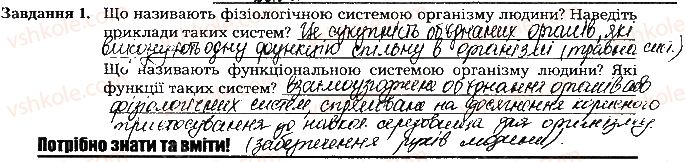 Завдання 1. Що називають фізіологічною системою організму людини? Наведіть
приклади таких систем? Це сукупність об'єднаних органів, які
виконують одну функцію спільну в організмі (травна сис.)
Що називають функціональною системою організму людини? Які
функції таких систем? Взаємоузгоджене об'єднання органів або
фізіологічних систем, спрямоване на досягнення корисного
пристосування до навкол. середовища для організму.
Потрібно знати та вміти! (забезпечення рухів людини).
vshkole.com